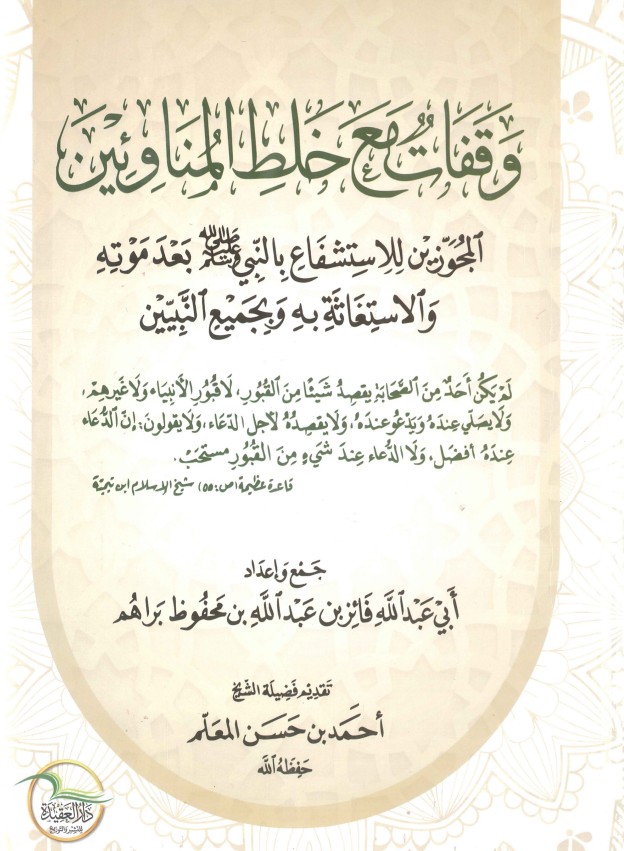 وَقَفَاتٌ مَعَ خَلْطِ الْمُنَاوِئِينَ
المُجَوِّزِيْنَ لِلاِسْتِشْفَاعِ بِالنَّبِيِّ ﷺ بَعْدَ مَوْتِهِ
وَالاسْتِغَاثَةِ بِهِ وَبِجَمِيْعِ النَّبِيِّيْنَ
لَمْ يَكُنْ أَحَدٌ مِنَ الصَّحَابَةِ يَقصِدُ شَيْئًا مِنَ القُبُورِ، لَا قُبُورِ الأَنبِيَاءِ وَلَا غَيرِهِمْ،
وَلَا يُصَلِّي عِندَهُ وَيَدْعُو عِندَهُ، وَلَا يَقصِدُهُ لأَجلِ الدّعَاءِ، وَلَا يَقُولُونَ: إِنَّ الدُّعَاءَ
عِندَهُ أَفضَل، وَلَا الدُّعَاء عِندَ شَيْءٍ مِنَ القُبُورِ مُستَحَبّ.
قاعدة عظيمة (ص: ٥٥) شيخ الإسلام ابن تيمية
جَمْع وَإعْدَاد
أَبِيْ عَبْدِ اللَّهِ فَائِز بن عَبْدِ اللَّهِ بن مَحفُوظ بَرَاهُم
تَقدِيم فَضِيلَة الشَّيْخ
أَحْمَد بن حَسَن المُعَلِّم
حَفِظَهُ اللَّه
دَارُ العَقِيْدَة
للنشر والتوزيع